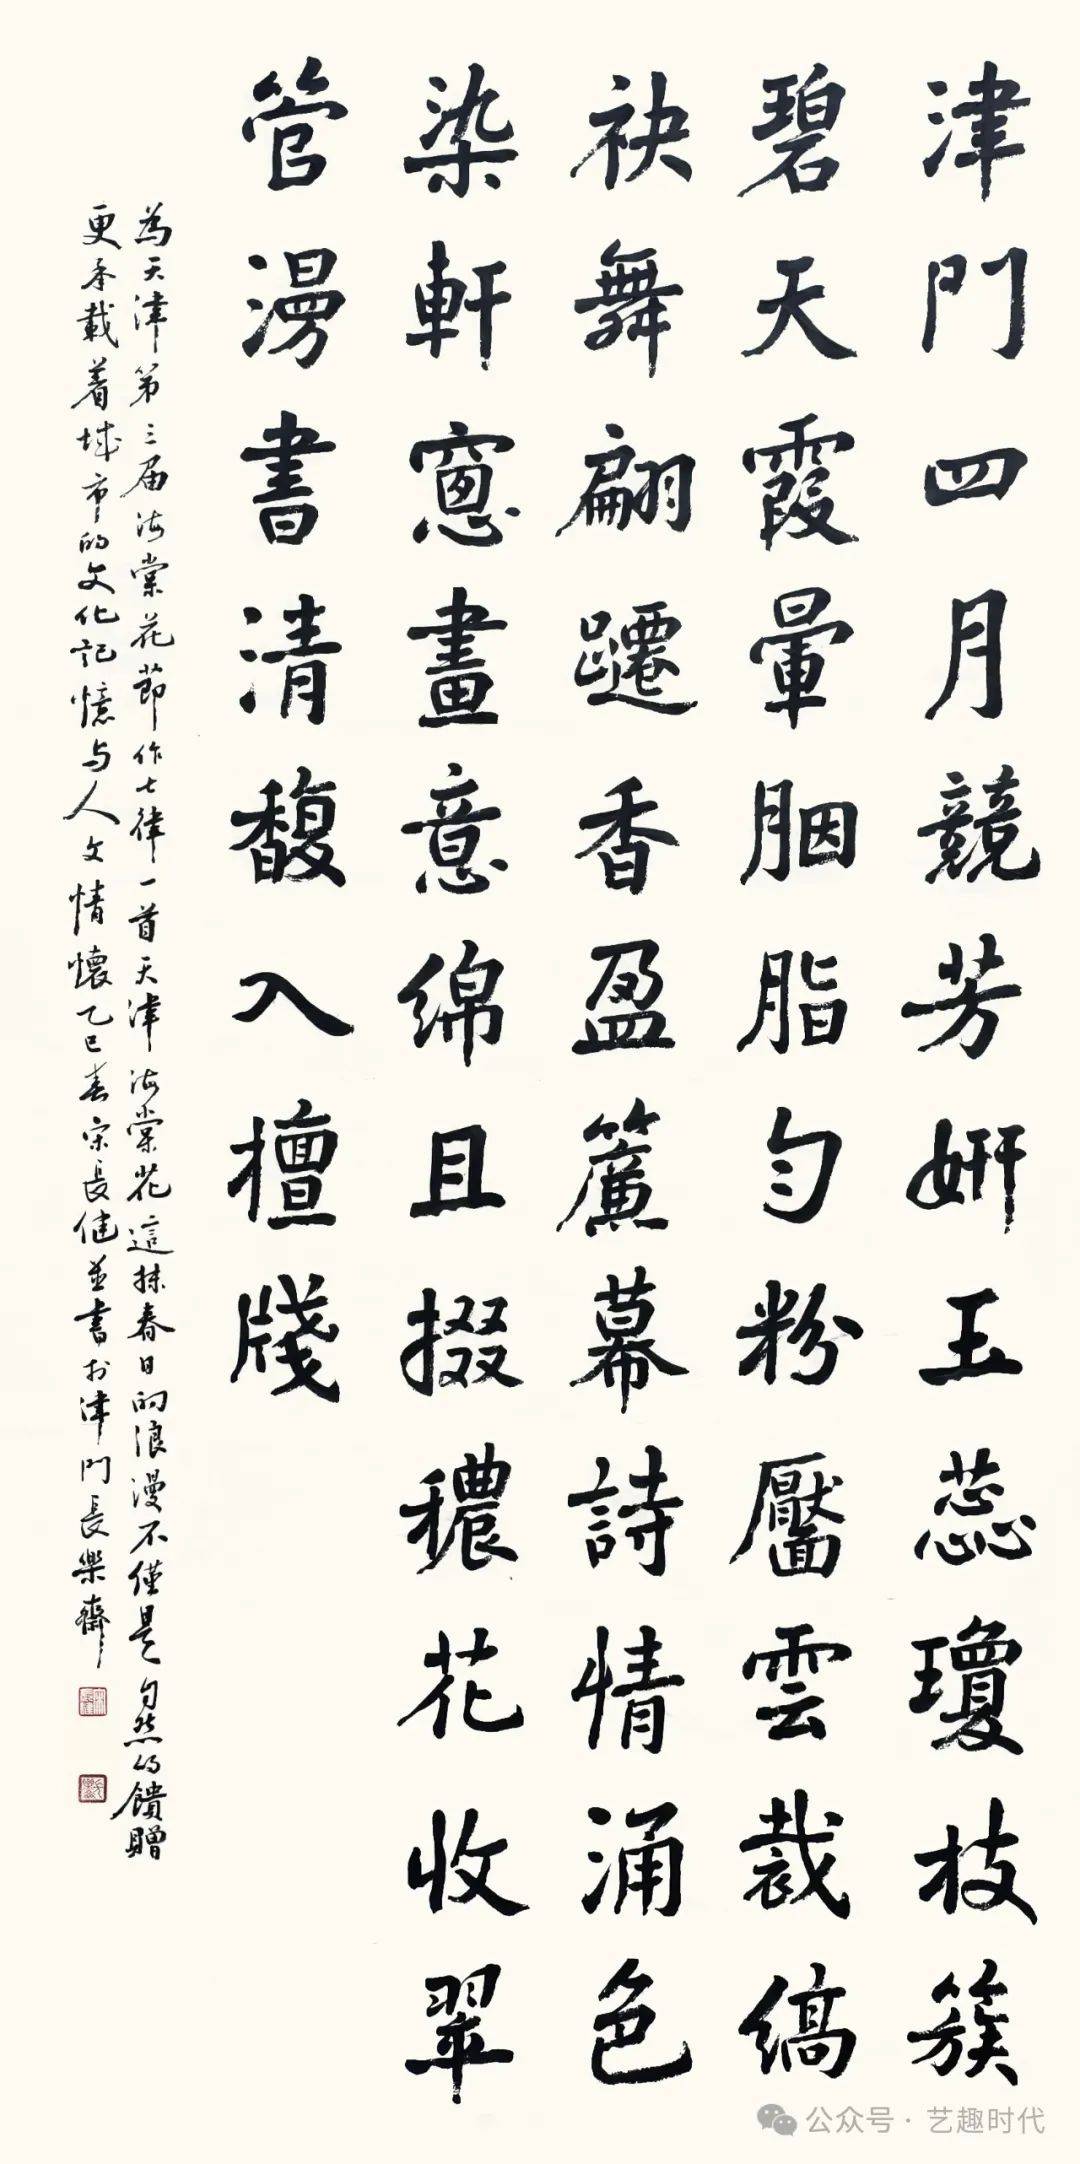 津門四月競芳妍玉蕊瓊枝簇
碧天霞暈胭脂勻粉靨雲裁縞
袂舞翩躚香盈簾幕詩情涌色
染軒窻畫意綿且掇穠花收翠
管漫書清馥入檀牋
為天津第三届海棠花節作七律一首天津海棠花這抹春日的浪漫不僅是自然的饋贈
更承載着城市的文化記憶与人文情懷乙巳春宋長健並書於津門長樂齋
公众号·艺趣时代